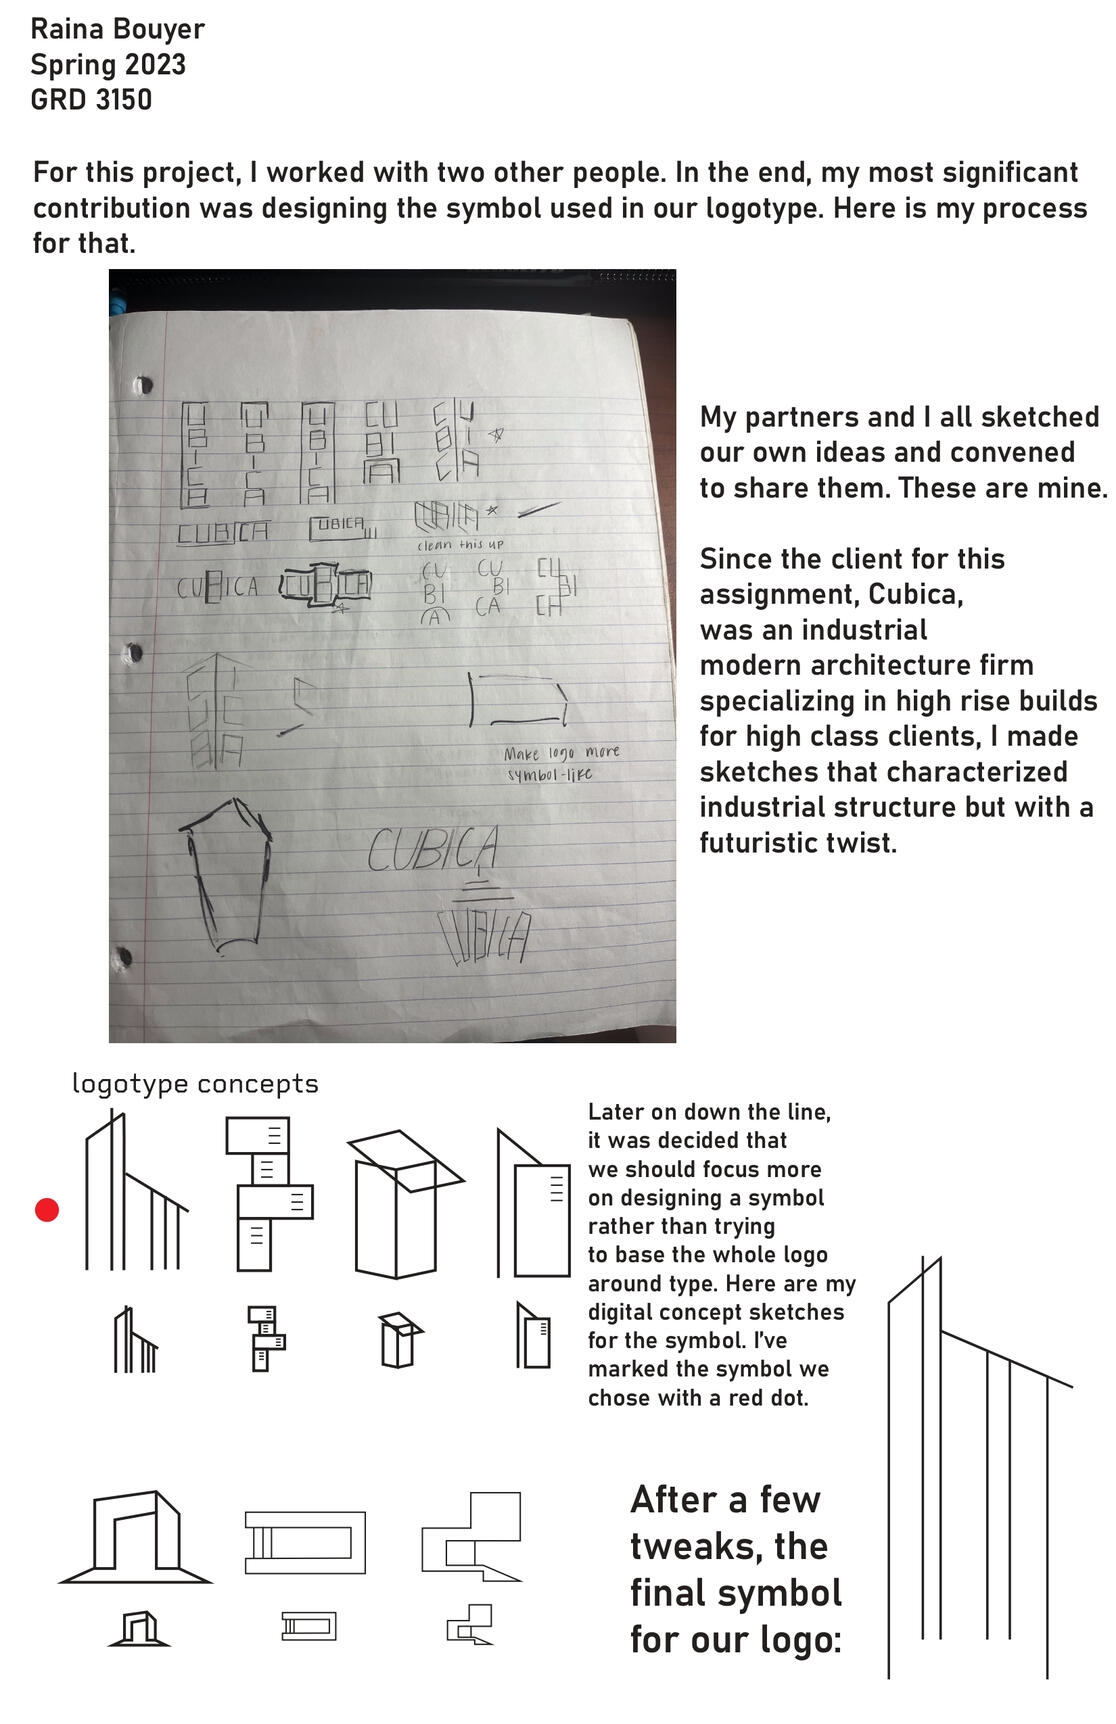 Raina Bouyer
Spring 2023
GRD 3150
For this project, I worked with two other people. In the end, my most significant
contribution was designing the symbol used in our logotype. Here is my process
for that.
CUBICA
CUBICA
CUBICA
clean this up
CUBICA
CUBICA
CU
BI
A
CU
BI
CA
CU
BI
CA
Make logo more
symbol-like
CUBICA
CUBICA
My partners and I all sketched
our own ideas and convened
to share them. These are mine.
Since the client for this
assignment, Cubica,
was an industrial
modern architecture firm
specializing in high rise builds
for high class clients, I made
sketches that characterized
industrial structure but with a
futuristic twist.
logotype concepts
Later on down the line,
it was decided that
we should focus more
on designing a symbol
rather than trying
to base the whole logo
around type. Here are my
digital concept sketches
for the symbol. I've
marked the symbol we
chose with a red dot.
After a few
tweaks, the
final symbol
for our logo: